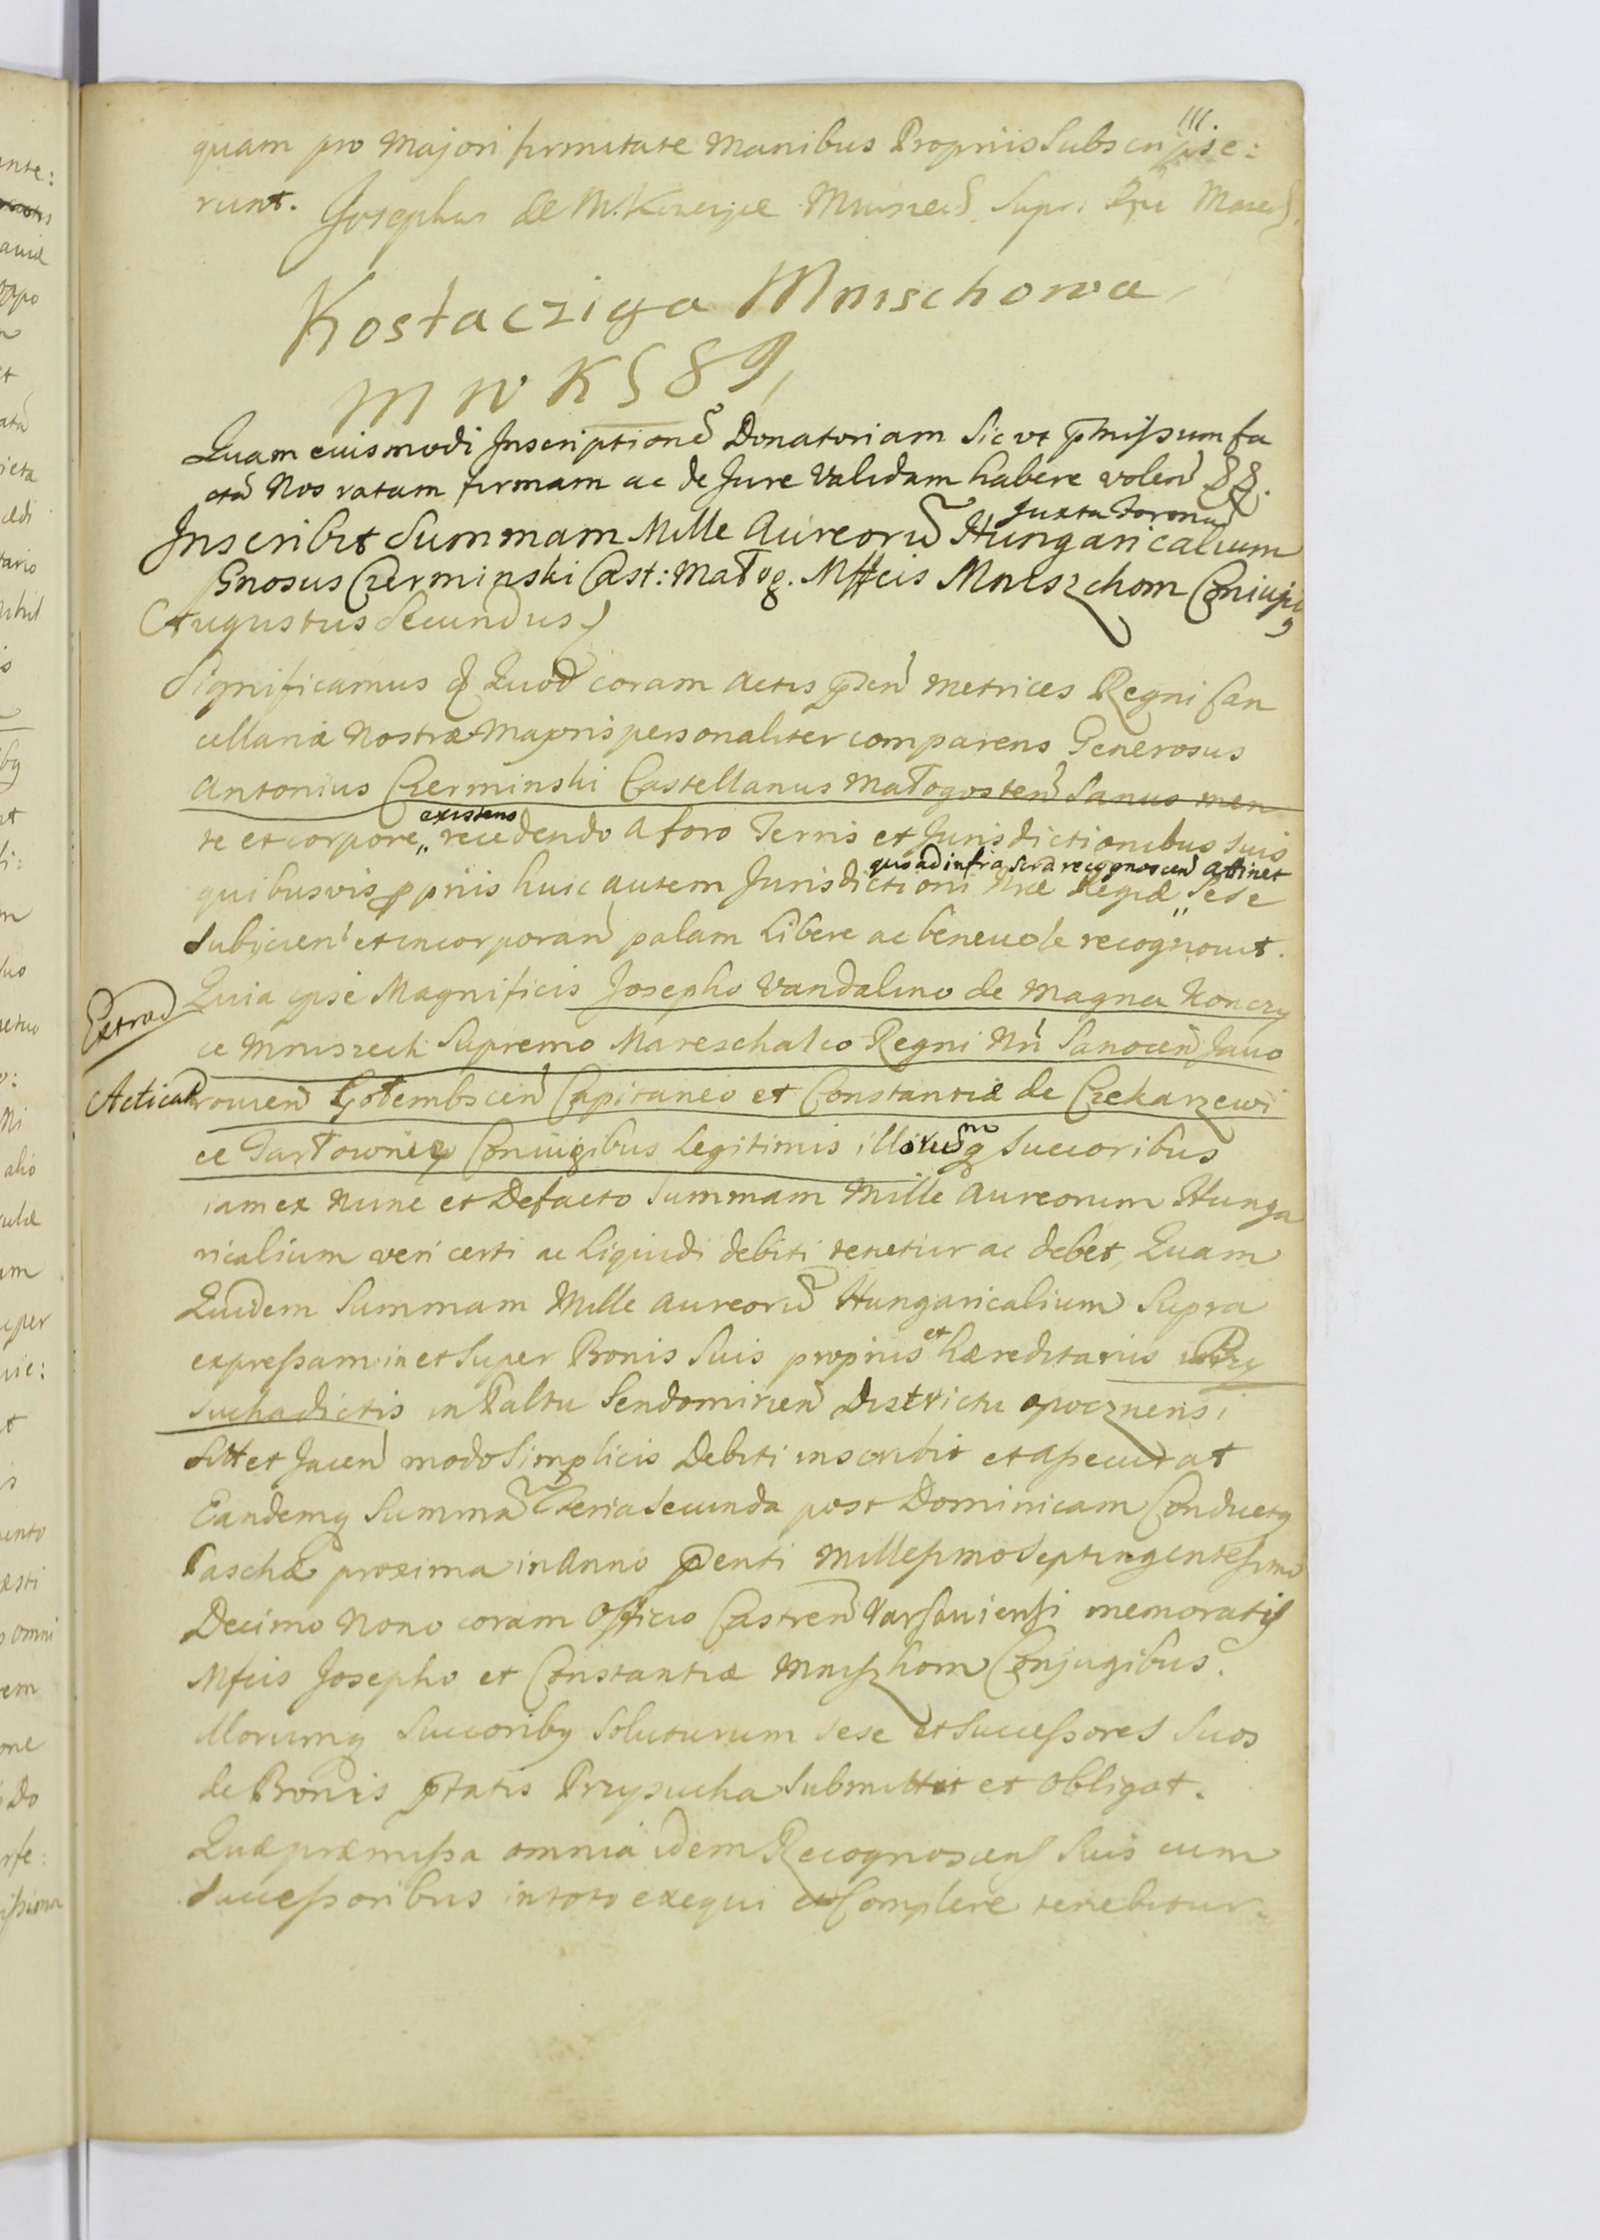 111.
quam pro majori firmitate manibus Propriis Subscripse:
runt. Josephus de M. Mniszech Supr. Mares.
Kostacziga Mnischowa
M W K S 8 9,
Quam eiusmodi Inscriptionẽ Donatoriam Sic ut pmissum fa
ctã Nos ratam firmam ac de Jure Validam habere volen
Juxta Toronu
Inscribit Summam Mille Aureorũ Hungaricalium
Gnosus Czerminski Cast: Małog. Mffcis Mniszchom Coniugi
Augustus Secundus
Significamus Quod coram actis psen metrices Regni Can
cellariæ Nostræ Majoris personaliter comparens Generosus
Antonius Czerminski Castellanus Małogosten Sanus men
existens
te et corpore „ recedendo a foro Terris et Jurisdictionibus suis
quo ad infra scra recognoscen attinet
quibusvis ppriis huic autem Jurisdictioni Nræ Regiæ „ sese
subijcien et incorporan palam libere ac beneuole recognouit.
Extrad
Quia ipse Magnificis Josepho Vandalino de Magna Konczy
ce Mniszech Supremo Mareschalco Regni Nri Sanocen Jauo
Acticat
rouien Gołembscen Capitaneo et Constantiæ de Czekarzewi
ce Tartowney Coniugibus legitimis illorumq succoribus
iam ex nunc et Defacto Summam Mille Aureorum Hunga
ricalium veri certi ac liquidi debiti tenetur ac debet, Quam
Quidem Summam Mille aureorũ Hungaricalium Supra
expressam in et super Bonis suis propriis et hæreditariis Przy
suchadictis in Paltu Sendomirien Districtu opocznensi
sitt et Jacen modo Simplicis Debiti inscribit et assecurat
Eandemq Summã Feria secunda post Dominicam Conductq
Paschæ proxima in Anno psenti Millesimo Septingentesimo
Decimo Nono coram Officio Castren Varsauiensi memoratis
Mfcis Josepho et Constantiæ Mniszhom Conjugibus.
illorumq Succoribq soluturum sese et Successores suos
de Bonis pttatis Przysucha submittit et obligat.
Quæ præmissa omnia idem Recognoscens Suis cum
Successoribus in toto exequi et Complere tenebitur.